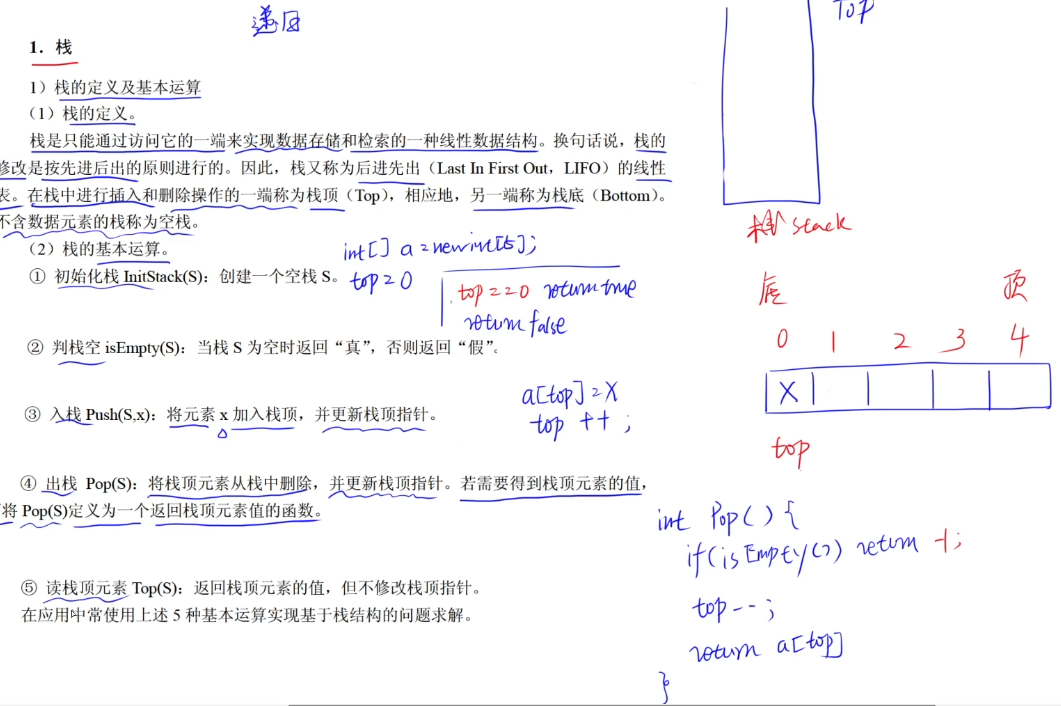 递归
Top
1. 栈
1）栈的定义及基本运算
（1）栈的定义。
栈是只能通过访问它的一端来实现数据存储和检索的一种线性数据结构。换句话说，栈的
修改是按先进后出的原则进行的。因此，栈又称为后进先出（Last In First Out，LIFO）的线性
表。在栈中进行插入和删除操作的一端称为栈顶（Top），相应地，另一端称为栈底（Bottom）。
不含数据元素的栈称为空栈。
栈 stack
（2）栈的基本运算。
int[] a = new int[5];
① 初始化栈 InitStack(S)：创建一个空栈 S。
top=0
top==0 return true
return false
底 顶
0 1 2 3 4
X
top
② 判栈空 isEmpty(S)：当栈 S 为空时返回“真”，否则返回“假”。
a[top]=X
top ++ ;
③ 入栈 Push(S,x)：将元素 x 加入栈顶，并更新栈顶指针。
④ 出栈 Pop(S)：将栈顶元素从栈中删除，并更新栈顶指针。若需要得到栈顶元素的值，
将 Pop(S)定义为一个返回栈顶元素值的函数。
int Pop() {
if(isEmpty()) return -1;
top--;
return a[top]
}
⑤ 读栈顶元素 Top(S)：返回栈顶元素的值，但不修改栈顶指针。
在应用中常使用上述 5 种基本运算实现基于栈结构的问题求解。